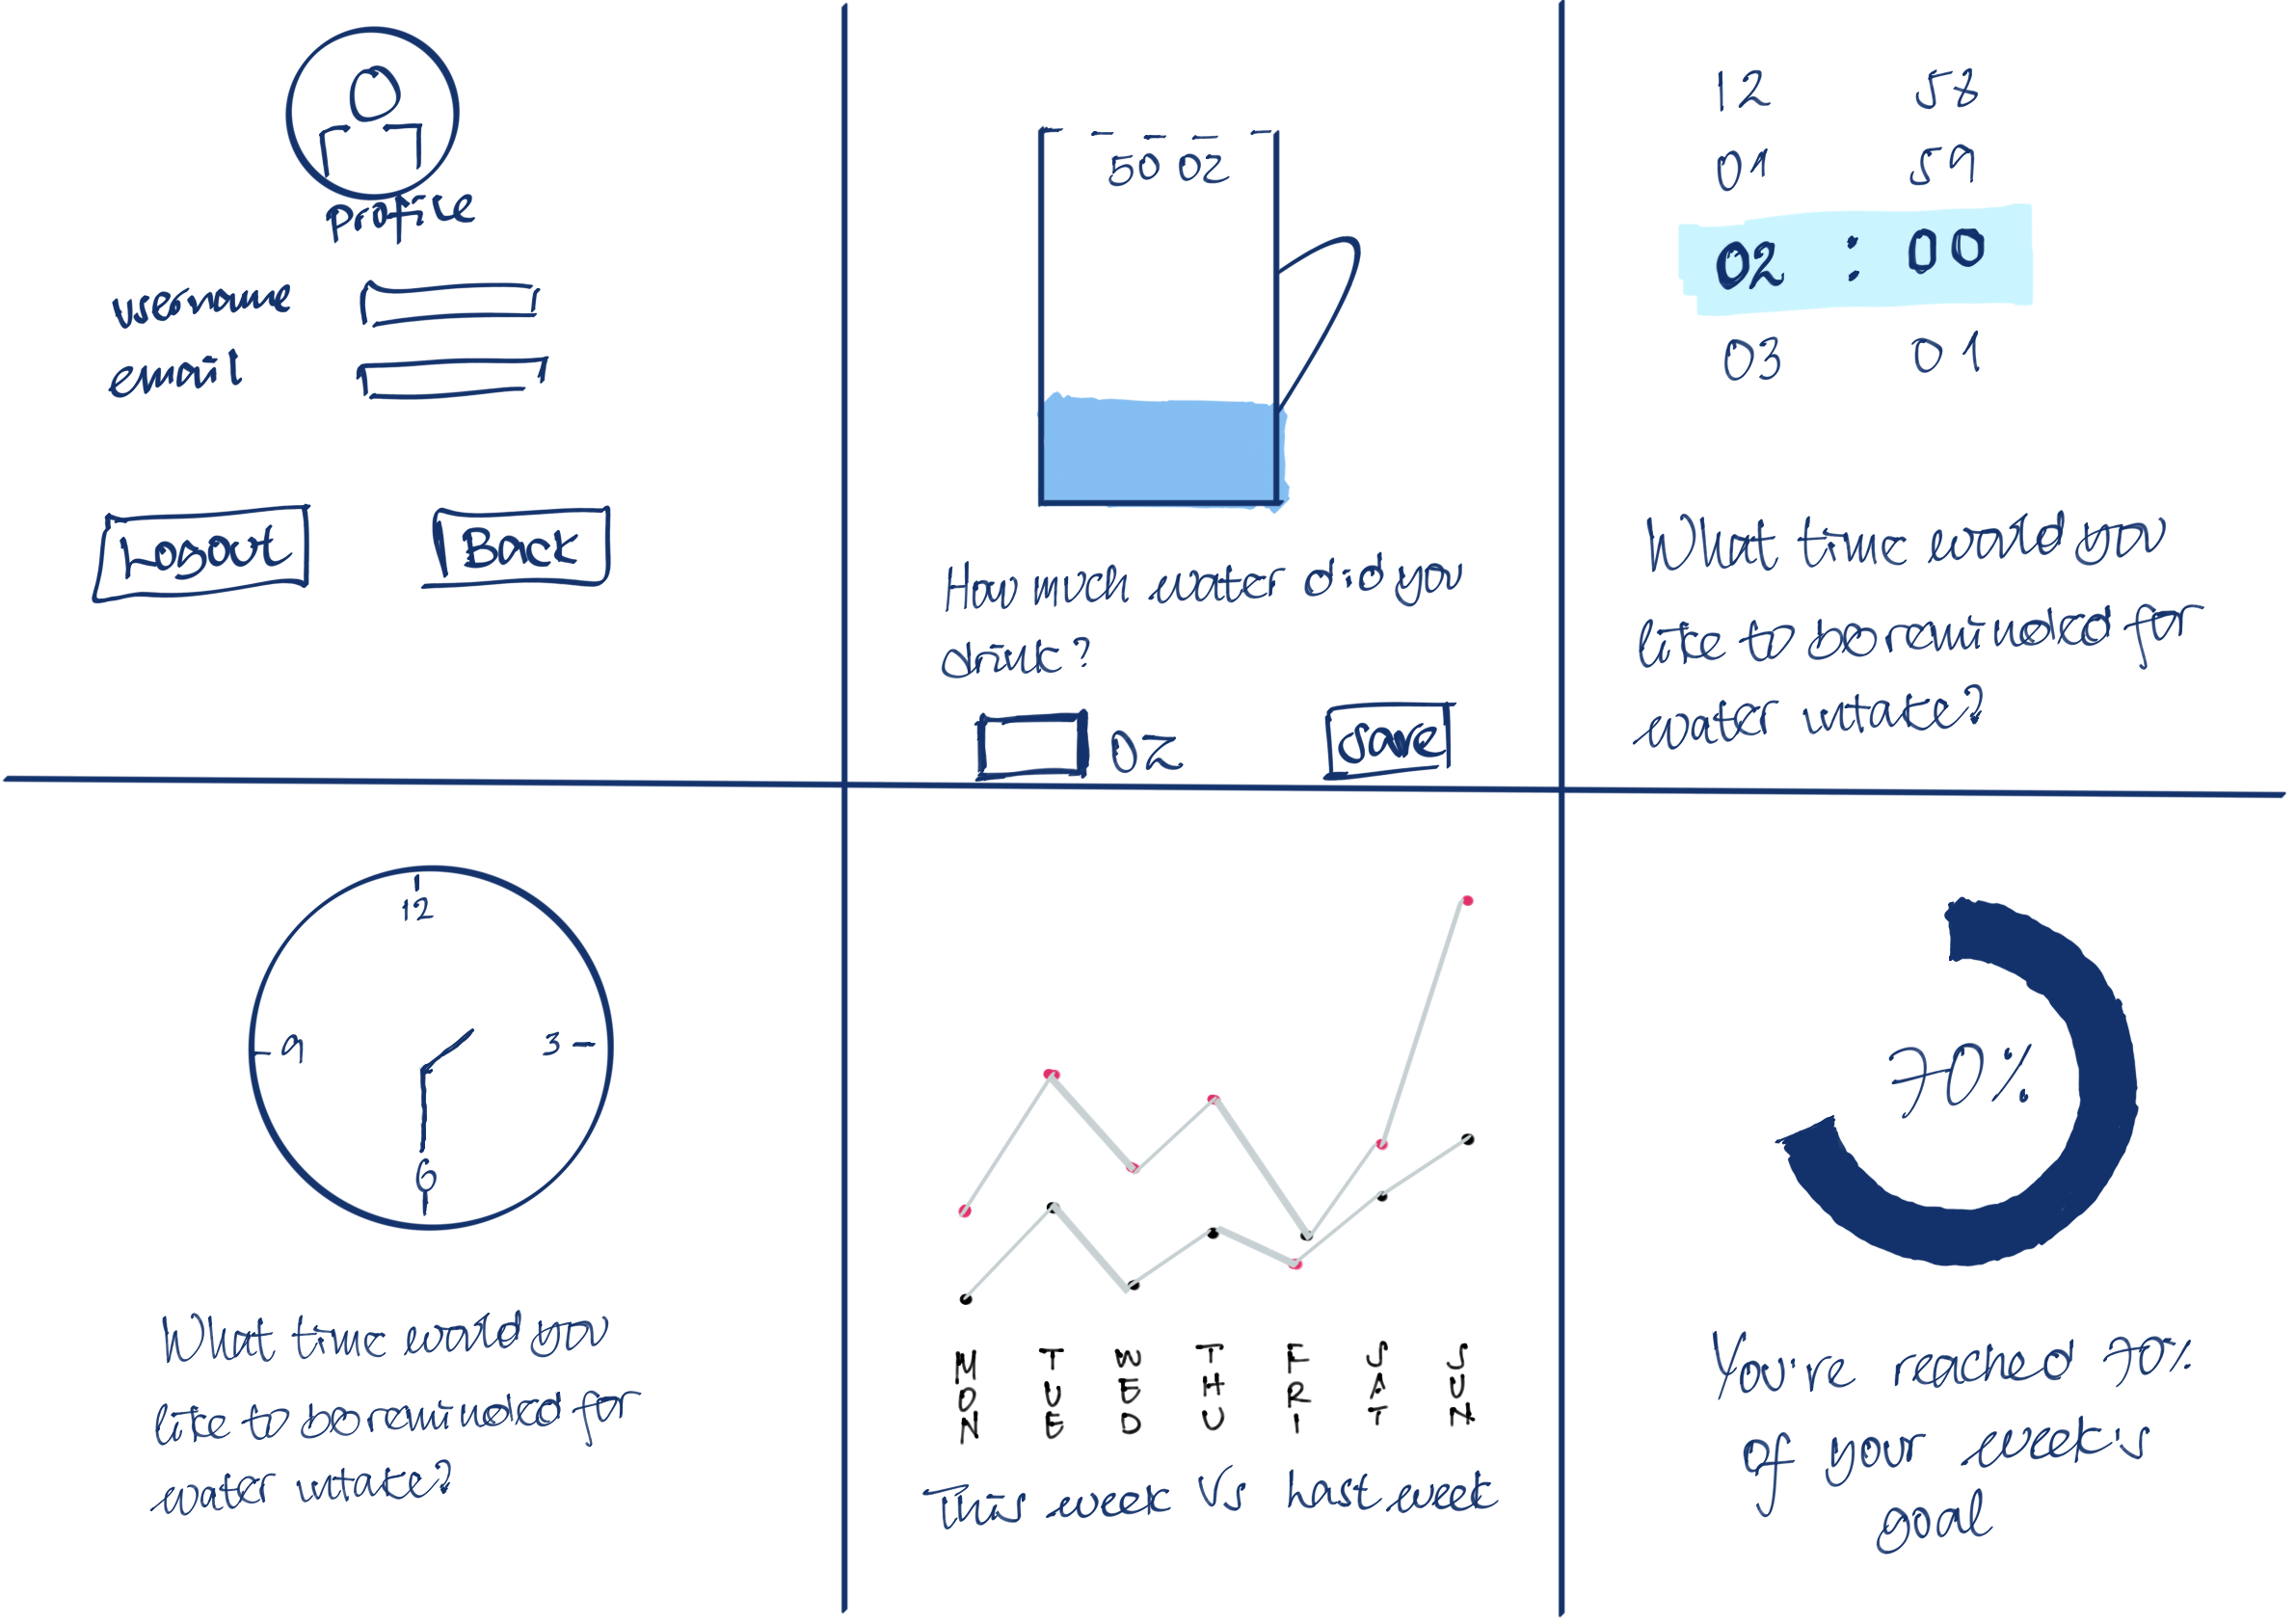 Profile
username
email
Logout
Back
50 oz
How much water did you
drink?
OZ
Save
12 58
01 59
02 : 00
03 01
What time would you
like to be reminded for
water intake?
12
9
3
6
What time would you
like to be reminded for
water intake?
MON TUE WED THU FRI SAT SUN
This week Vs last week
70%
You're reached 70%
of your week's
goal